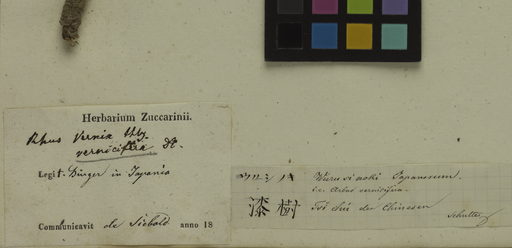 Herbarium Zuccarinii.
Rhus Vernix Thbg.
vernicifera DC.
Legit. Bürger in Japonia
Communicavit de Siebold anno 18
ウルシノキ Wurusi noki Japonorum.
i.e. Arbor vernicifera.
漆樹 der Chinesen
Schultes